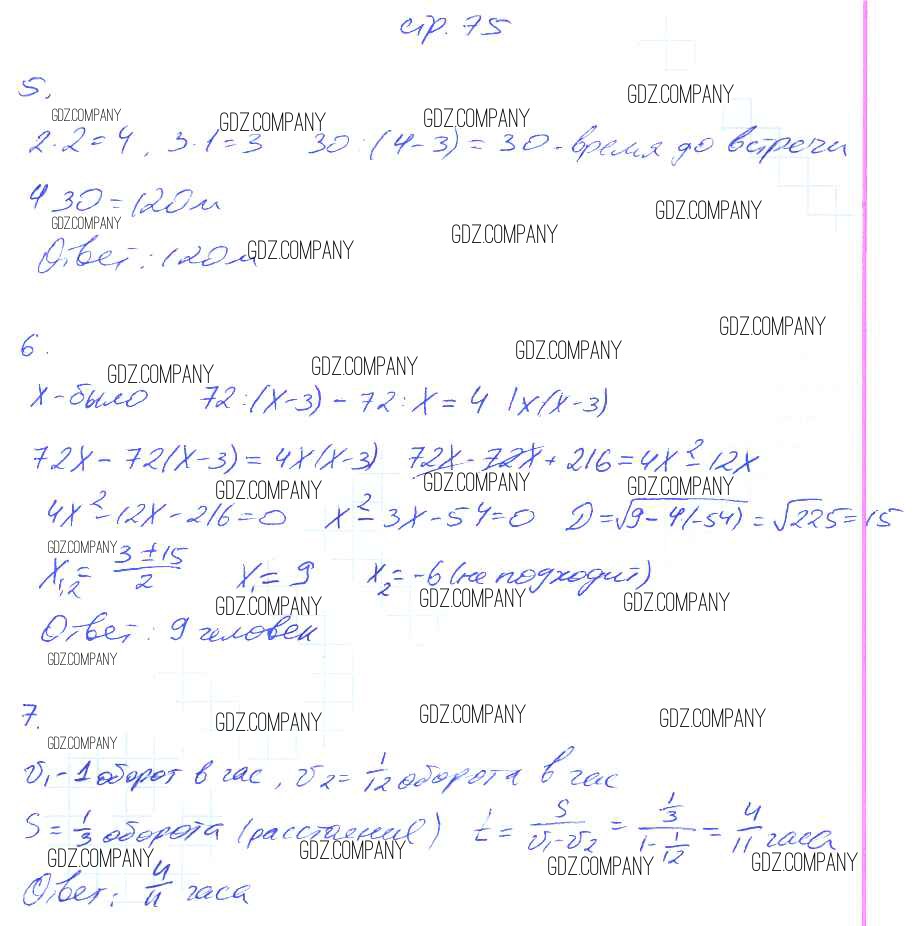 стр. 75
5.
GDZ.COMPANY GDZ.COMPANY GDZ.COMPANY GDZ.COMPANY
2·2=4, 3·1=3 30:(4-3)=30-время до встречи
4 30=120м
GDZ.COMPANY GDZ.COMPANY GDZ.COMPANY GDZ.COMPANY
Ответ: 120м
6.
GDZ.COMPANY GDZ.COMPANY GDZ.COMPANY GDZ.COMPANY
x-было 72:(x-3)-72:x=4 |x(x-3)
72x-72(x-3)=4x(x-3) 72x-72x+216=4x²-12x
GDZ.COMPANY GDZ.COMPANY GDZ.COMPANY
4x²-12x-216=0 x²-3x-54=0 D=√9-4(-54)=√225=15
GDZ.COMPANY
x₁,₂=(3±15)/2 x₁=9 x₂=-6(не подходит)
GDZ.COMPANY GDZ.COMPANY GDZ.COMPANY
Ответ: 9 человек
GDZ.COMPANY
7.
GDZ.COMPANY GDZ.COMPANY GDZ.COMPANY
GDZ.COMPANY
v₁-1 оборот в час, v₂=1/12 оборота в час
S=1/3 оборота (расстояние) t=S/(v₁-v₂)=(1/3)/(1-1/12)=4/11 часа
GDZ.COMPANY GDZ.COMPANY GDZ.COMPANY GDZ.COMPANY
Ответ: 4/11 часа